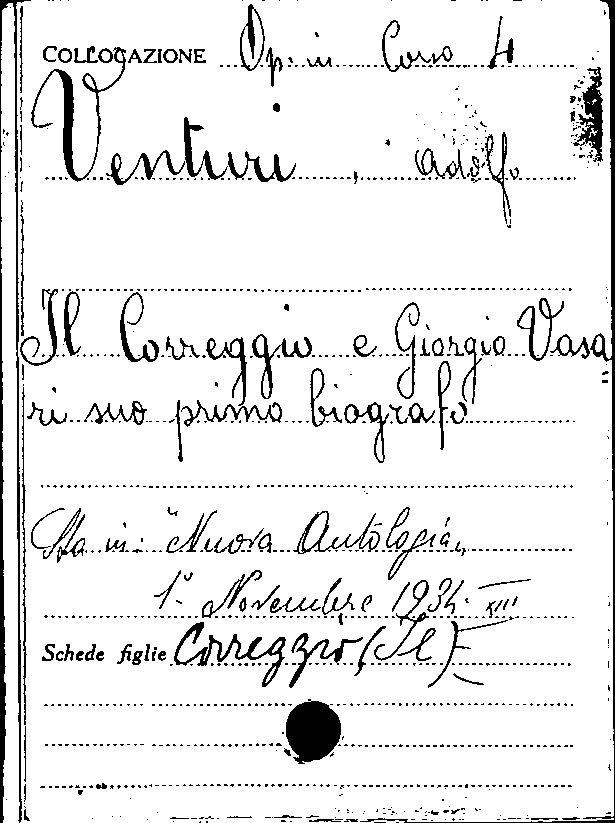 COLLOCAZIONE Op. in Corso 4
Venturi, Adolfo
Il Correggio e Giorgio Vasa
ri suo primo biografo
Sta in: "Nuova Antologia,,
1° Novembre 1934. XIII
Schede figlie Correggio (Il)